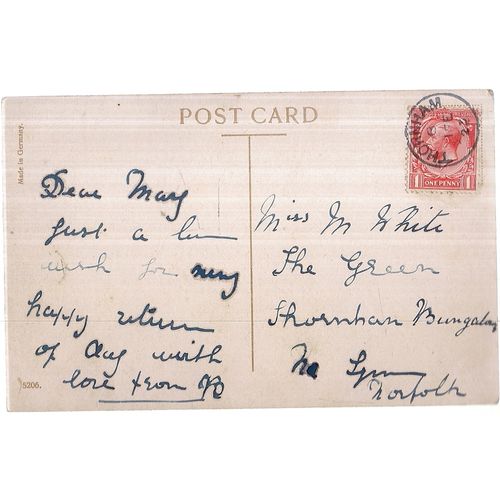 POST CARD
Made in Germany.
THORNHAM
22
1 ONE PENNY 1
Dear Mary
Just a
wish for many
happy return
of day with
love from
Miss M White
The Green
Thornham Bungalow
Nr Lynn
Norfolk
5206.